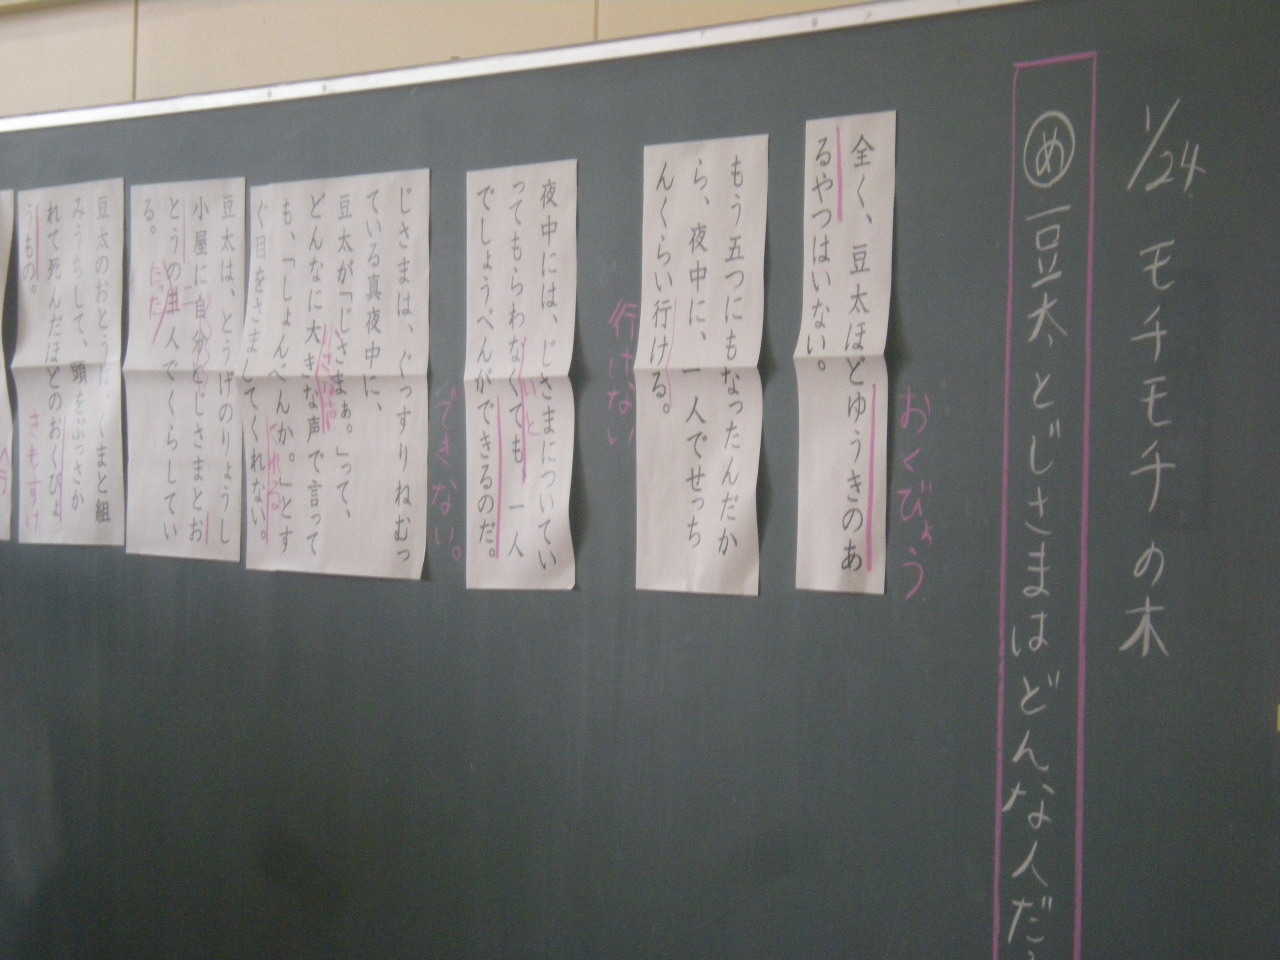 1/24 モチモチの木
め 豆太とじさまはどんな人だ
おくびょう
全く、豆太ほどゆうきのあ
るやつはいない。
もう五つにもなったんだか
ら、夜中に、一人でせっち
んくらい行ける。
行けない
夜中には、じさまについてい
ってもらわなくても、一人
でしょうべんができるのだ。
いと
できない。
じさまは、ぐっすりねむっ
ている真夜中に、
豆太が「じさまぁ。」って、
どんなに大きな声で言って
も、「しょんべんか。」とす
ぐ目をさましてくれない。
小さい声
くれる
豆太は、とうげのりょうし
小屋に自分とじさまとお
とうの三人でくらしてい
る。
二
だった
豆太のおとうは、くまと組
みうちして、頭をぶっさか
れて死んだほどのおくびょ
うもの。
きもすけ